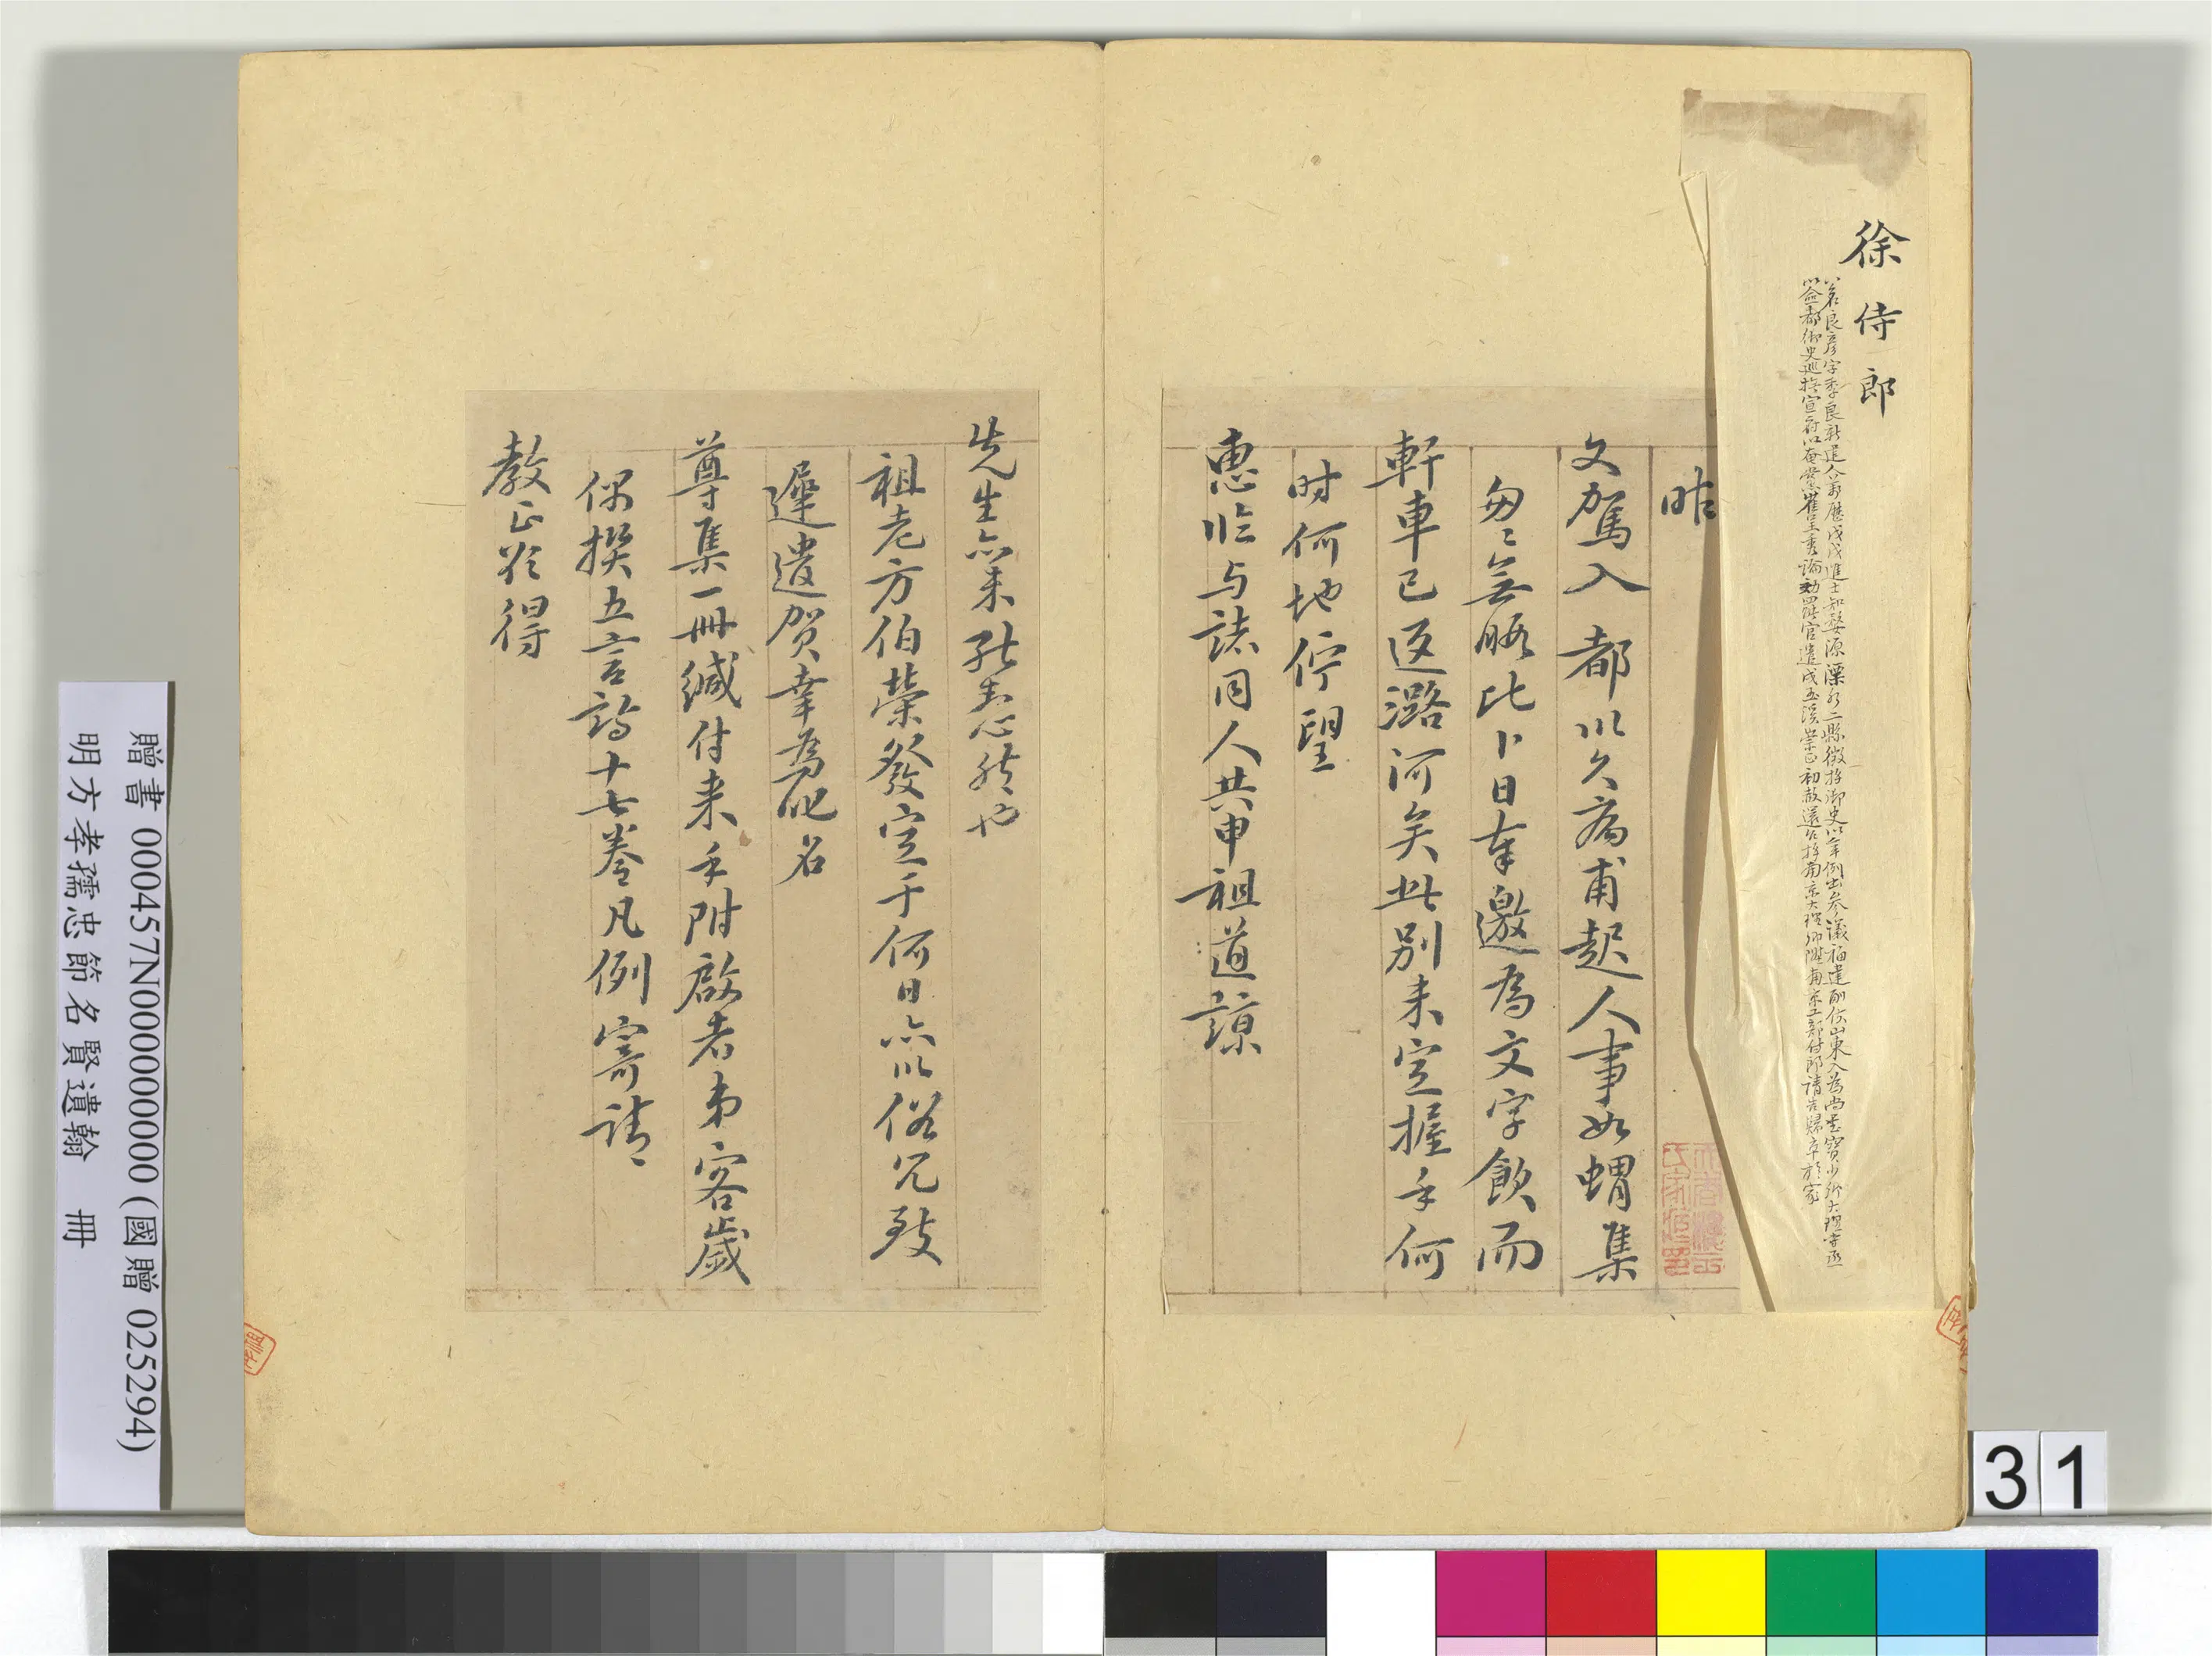 徐侍郎
公名良彥字季良新建人萬曆戊戌進士知婺源溧水二縣徵拜御史以年例出參議福建副使山東入為尚寶少卿大理寺丞
以僉都御史巡撫宣府以奄黨崔呈秀論劾罷官遣戍五溪崇正初赦還公拜南京大理卿陞南京工部侍郎請告歸卒於家
昨
文駕入都以久病甫起人事如蝟集
匆匆無暇比卜日奉邀為文字飲而
軒車已返潞河矣此別未定握手何
时何地佇望
惠临与諸同人共申祖道諒
先生亦未能恝然也
祖老方伯榮發定于何日亦以俗冗致
遲遣贺幸為叱名
尊集一冊緘付来手附啟者弟客歲
偶撰五言韵十七卷凡例寄請
教正犹得
贈書 000457N000000000 (國贈 025294)
明方孝孺忠節名賢遺翰 冊
31